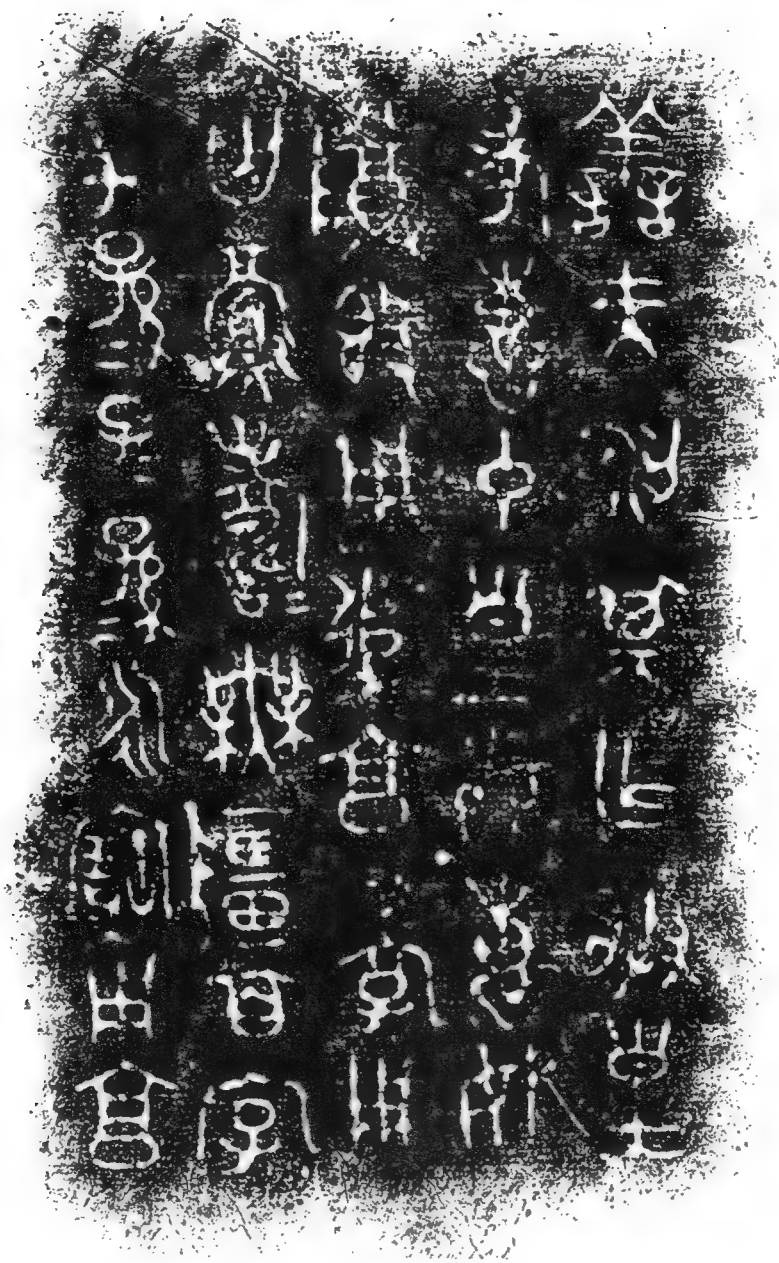 善夫梁其乍朕皇
考惠中皇母惠妀
尊簋用追享孝用
匄眉壽=無疆百字
千孫=子=孫=永寶用享